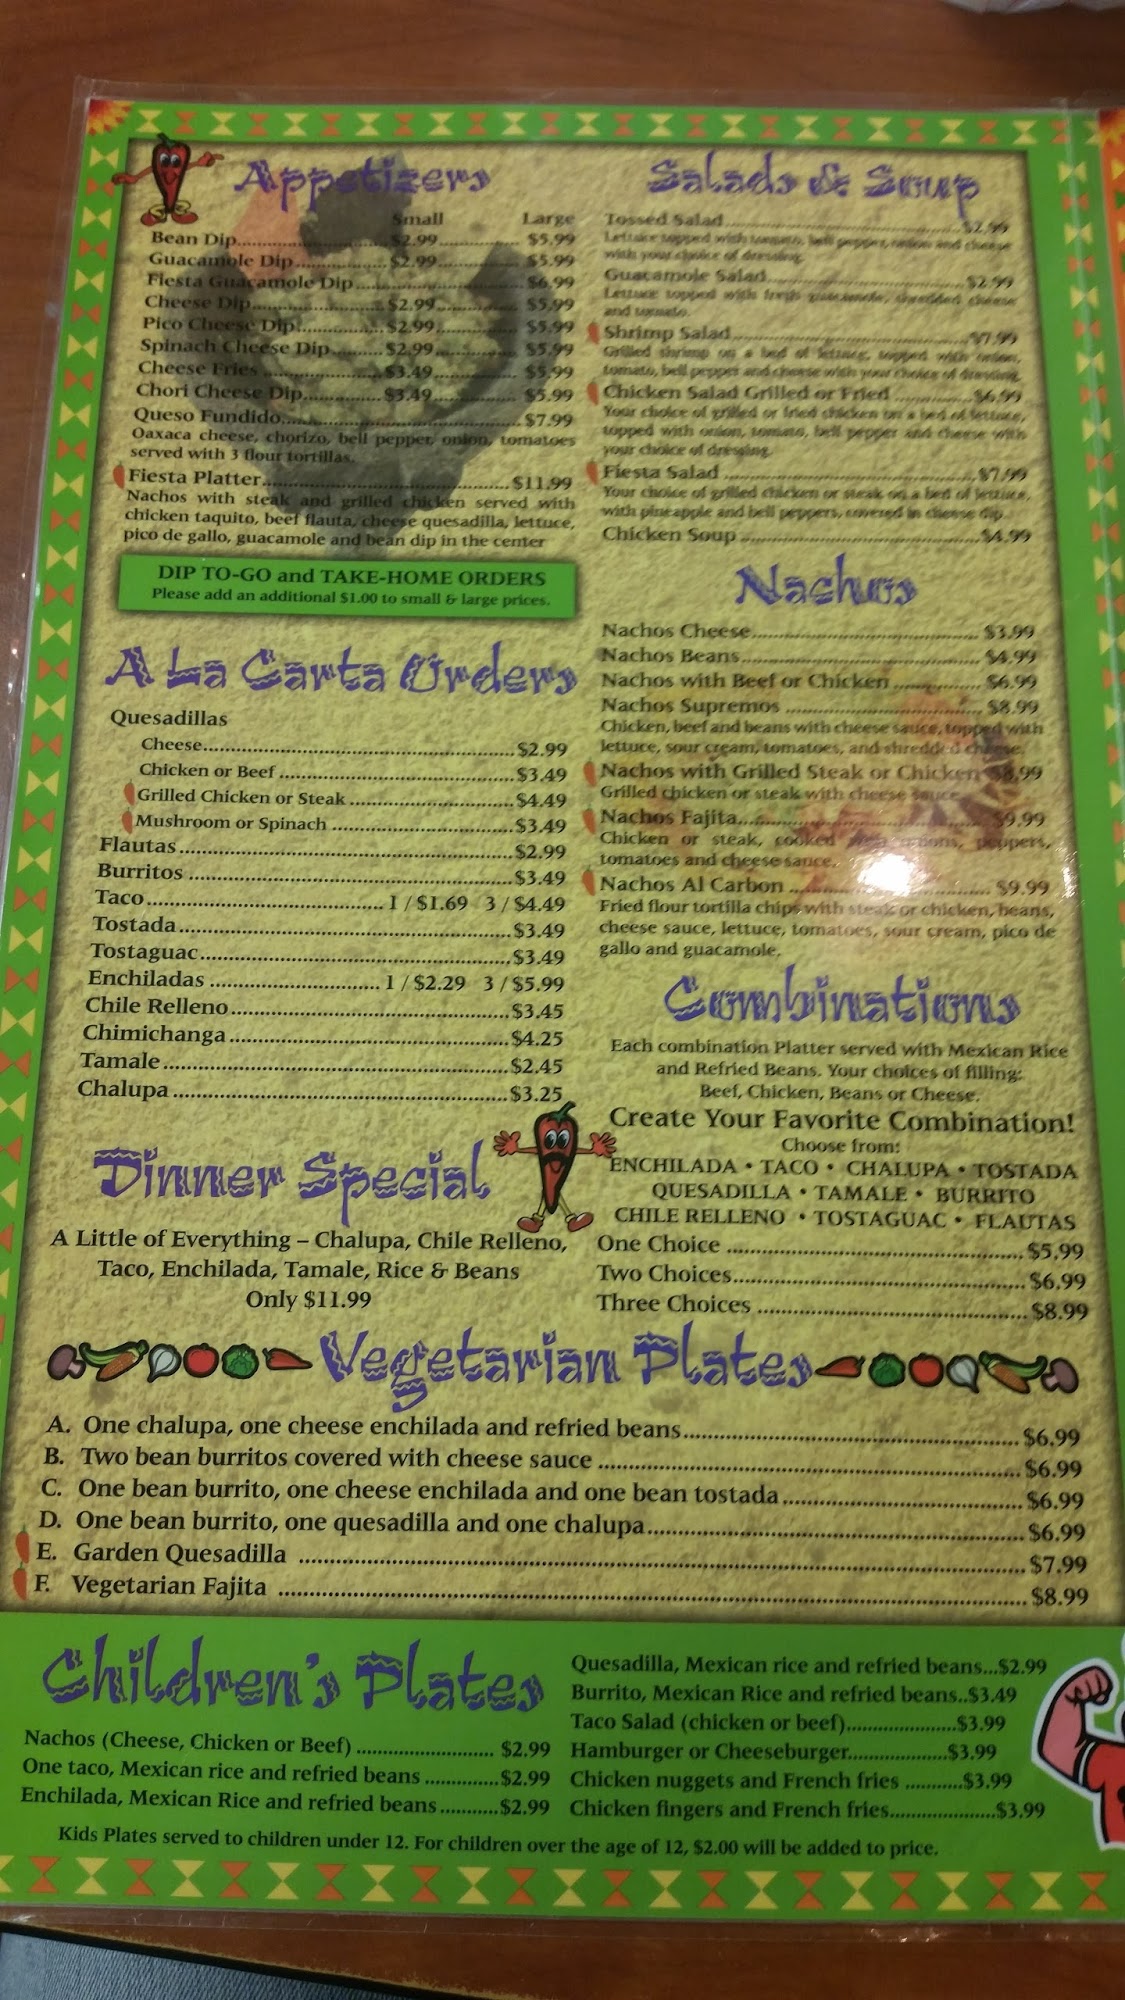 Appetizers
Small Large
Bean Dip $2.99 $5.99
Guacamole Dip $2.99 $5.99
Fiesta Guacamole Dip $6.99
Cheese Dip $2.99 $5.99
Pico Cheese Dip $2.99 $5.99
Spinach Cheese Dip $2.99 $5.99
Cheese Fries $3.49 $5.99
Chori Cheese Dip $3.49 $5.99
Queso Fundido $7.99
Oaxaca cheese, chorizo, bell pepper, onion, tomatoes
served with 3 flour tortillas.
Fiesta Platter $11.99
Nachos with steak and grilled chicken served with
chicken taquito, beef flauta, cheese quesadilla, lettuce,
pico de gallo, guacamole and bean dip in the center
DIP TO-GO and TAKE-HOME ORDERS
Please add an additional $1.00 to small & large prices.
A La Carta Orders
Quesadillas
Cheese $2.99
Chicken or Beef $3.49
Grilled Chicken or Steak $4.49
Mushroom or Spinach $3.49
Flautas $2.99
Burritos $3.49
Taco 1 / $1.69 3 / $4.49
Tostada $3.49
Tostaguac $3.49
Enchiladas 1 / $2.29 3 / $5.99
Chile Relleno $3.45
Chimichanga $4.25
Tamale $2.45
Chalupa $3.25
Dinner Special
A Little of Everything – Chalupa, Chile Relleno,
Taco, Enchilada, Tamale, Rice & Beans
Only $11.99
Salads & Soup
Tossed Salad $2.99
Lettuce topped with tomato, bell pepper, onion and cheese
with your choice of dressing.
Guacamole Salad $2.99
Lettuce topped with fresh guacamole, shredded cheese
and tomato.
Shrimp Salad $7.99
Grilled shrimp on a bed of lettuce, topped with onion,
tomato, bell pepper and cheese with your choice of dressing.
Chicken Salad Grilled or Fried $6.99
Your choice of grilled or fried chicken on a bed of lettuce,
topped with onion, tomato, bell pepper and cheese with
your choice of dressing.
Fiesta Salad $7.99
Your choice of grilled chicken or steak on a bed of lettuce,
with pineapple and bell peppers, covered in cheese dip.
Chicken Soup $4.99
Nachos
Nachos Cheese $3.99
Nachos Beans $4.99
Nachos with Beef or Chicken $6.99
Nachos Supremos $8.99
Chicken, beef and beans with cheese sauce, topped with
lettuce, sour cream, tomatoes, and shredded cheese.
Nachos with Grilled Steak or Chicken $8.99
Grilled chicken or steak with cheese sauce.
Nachos Fajita $9.99
Chicken or steak, cooked with onions, peppers,
tomatoes and cheese sauce.
Nachos Al Carbon $9.99
Fried flour tortilla chips with steak or chicken, beans,
cheese sauce, lettuce, tomatoes, sour cream, pico de
gallo and guacamole.
Combinations
Each combination Platter served with Mexican Rice
and Refried Beans. Your choices of filling:
Beef, Chicken, Beans or Cheese.
Create Your Favorite Combination!
Choose from:
ENCHILADA • TACO • CHALUPA • TOSTADA
QUESADILLA • TAMALE • BURRITO
CHILE RELLENO • TOSTAGUAC • FLAUTAS
One Choice $5.99
Two Choices $6.99
Three Choices $8.99
Vegetarian Plates
A. One chalupa, one cheese enchilada and refried beans $6.99
B. Two bean burritos covered with cheese sauce $6.99
C. One bean burrito, one cheese enchilada and one bean tostada $6.99
D. One bean burrito, one quesadilla and one chalupa $6.99
E. Garden Quesadilla $7.99
F. Vegetarian Fajita $8.99
Children's Plates
Nachos (Cheese, Chicken or Beef) $2.99
One taco, Mexican rice and refried beans $2.99
Enchilada, Mexican Rice and refried beans $2.99
Quesadilla, Mexican rice and refried beans $2.99
Burrito, Mexican Rice and refried beans $3.49
Taco Salad (chicken or beef) $3.99
Hamburger or Cheeseburger $3.99
Chicken nuggets and French fries $3.99
Chicken fingers and French fries $3.99
Kids Plates served to children under 12. For children over the age of 12, $2.00 will be added to price.